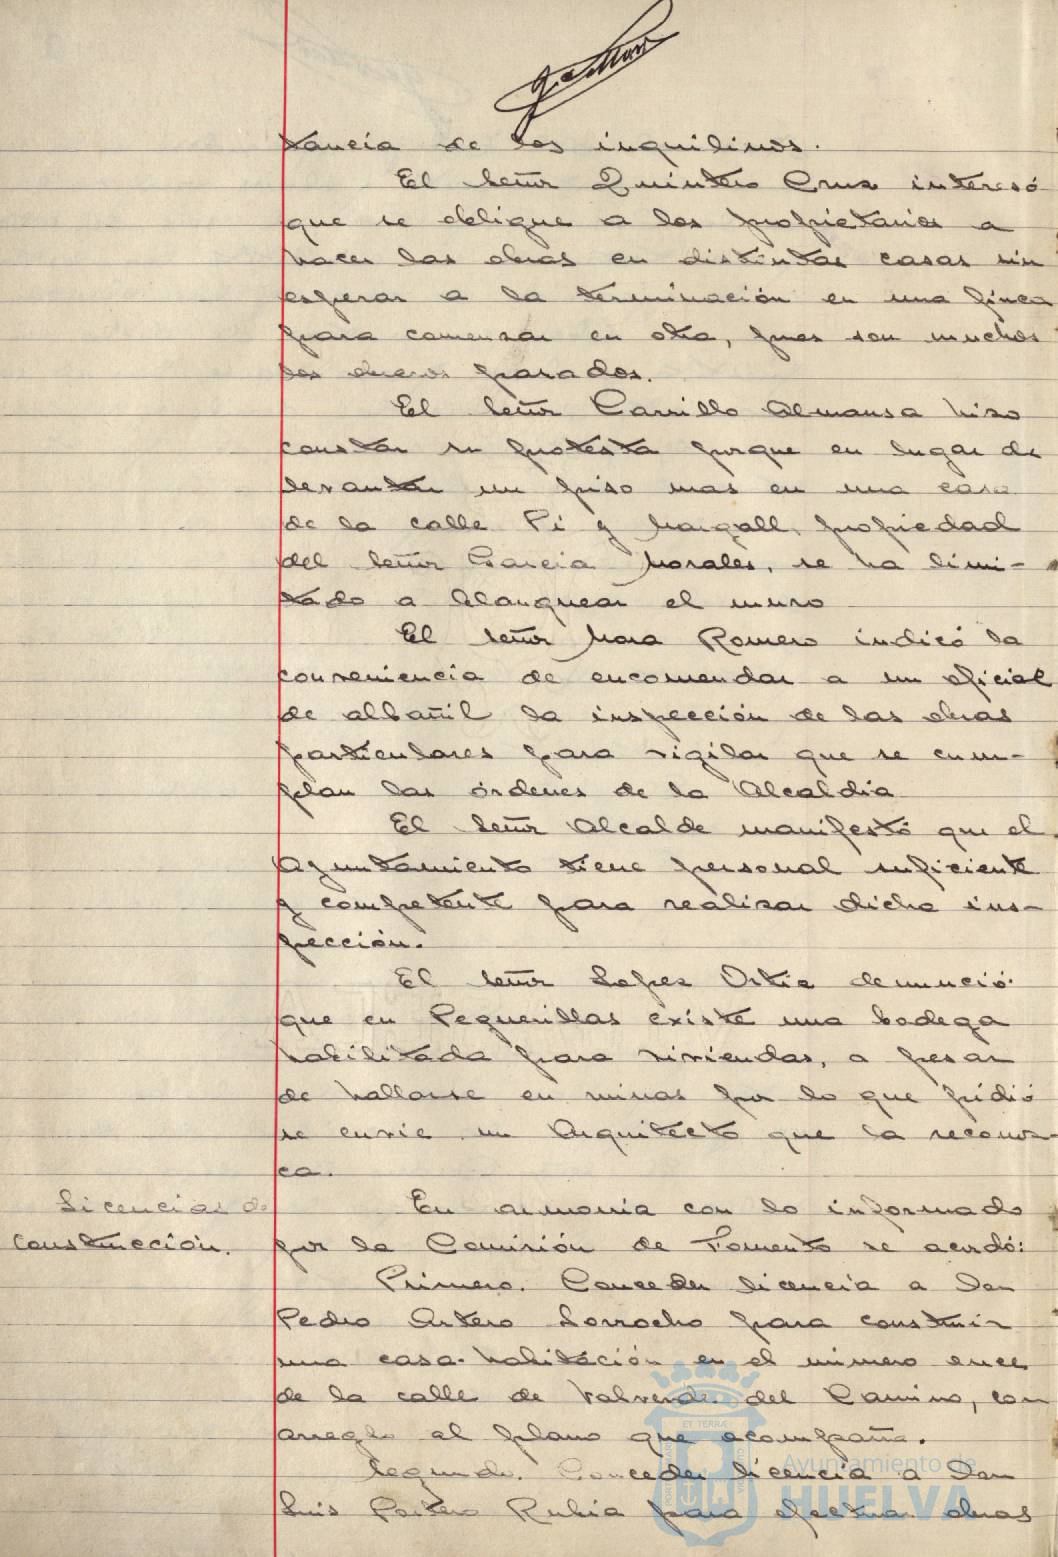 tancia de los inquilinos.
El Señor Quintero Cruz interesó
que se obligue a los propietarios a
hacer las obras en distintas casas sin
esperar a la terminación en una finca
para comenzar en otra, pues son muchos
los obreros parados.
El Señor Carrillo Almansa hizo
constar su protesta porque en lugar de
levantar un piso mas en una casa
de la calle Pí y Margall, propiedad
del Señor García Morales, se ha limi-
tado a blanquear el muro
El Señor Mora Romero indicó la
conveniencia de encomendar a un oficial
de albañil la inspección de las obras
particulares para vigilar que se cum-
plan las órdenes de la Alcaldía
El Señor Alcalde manifestó que el
Ayuntamiento tiene personal suficiente
y competente para realizar dicha ins-
pección.
El Señor Lopez Ortia denunció
que en Pequerillas existe una bodega
habilitada para viviendas, a pesar
de hallarse en ruinas por lo que pidió
se envie un Arquitecto que la reconoz-
ca.
Licencias de
construcción.
En armonía con lo informado
por la Comisión de Fomento se acordó:
Primero. Conceder licencia a Don
Pedro Artero Lorrocho para construir
una casa-habitación en el número once
de la calle de Valverde del Camino, con
arreglo al plano que acompaña.
Segundo. Conceder licencia a Don
Luis Portero Rubia para efectuar obras
ET TERRÆ
Ayuntamiento de
HUELVA